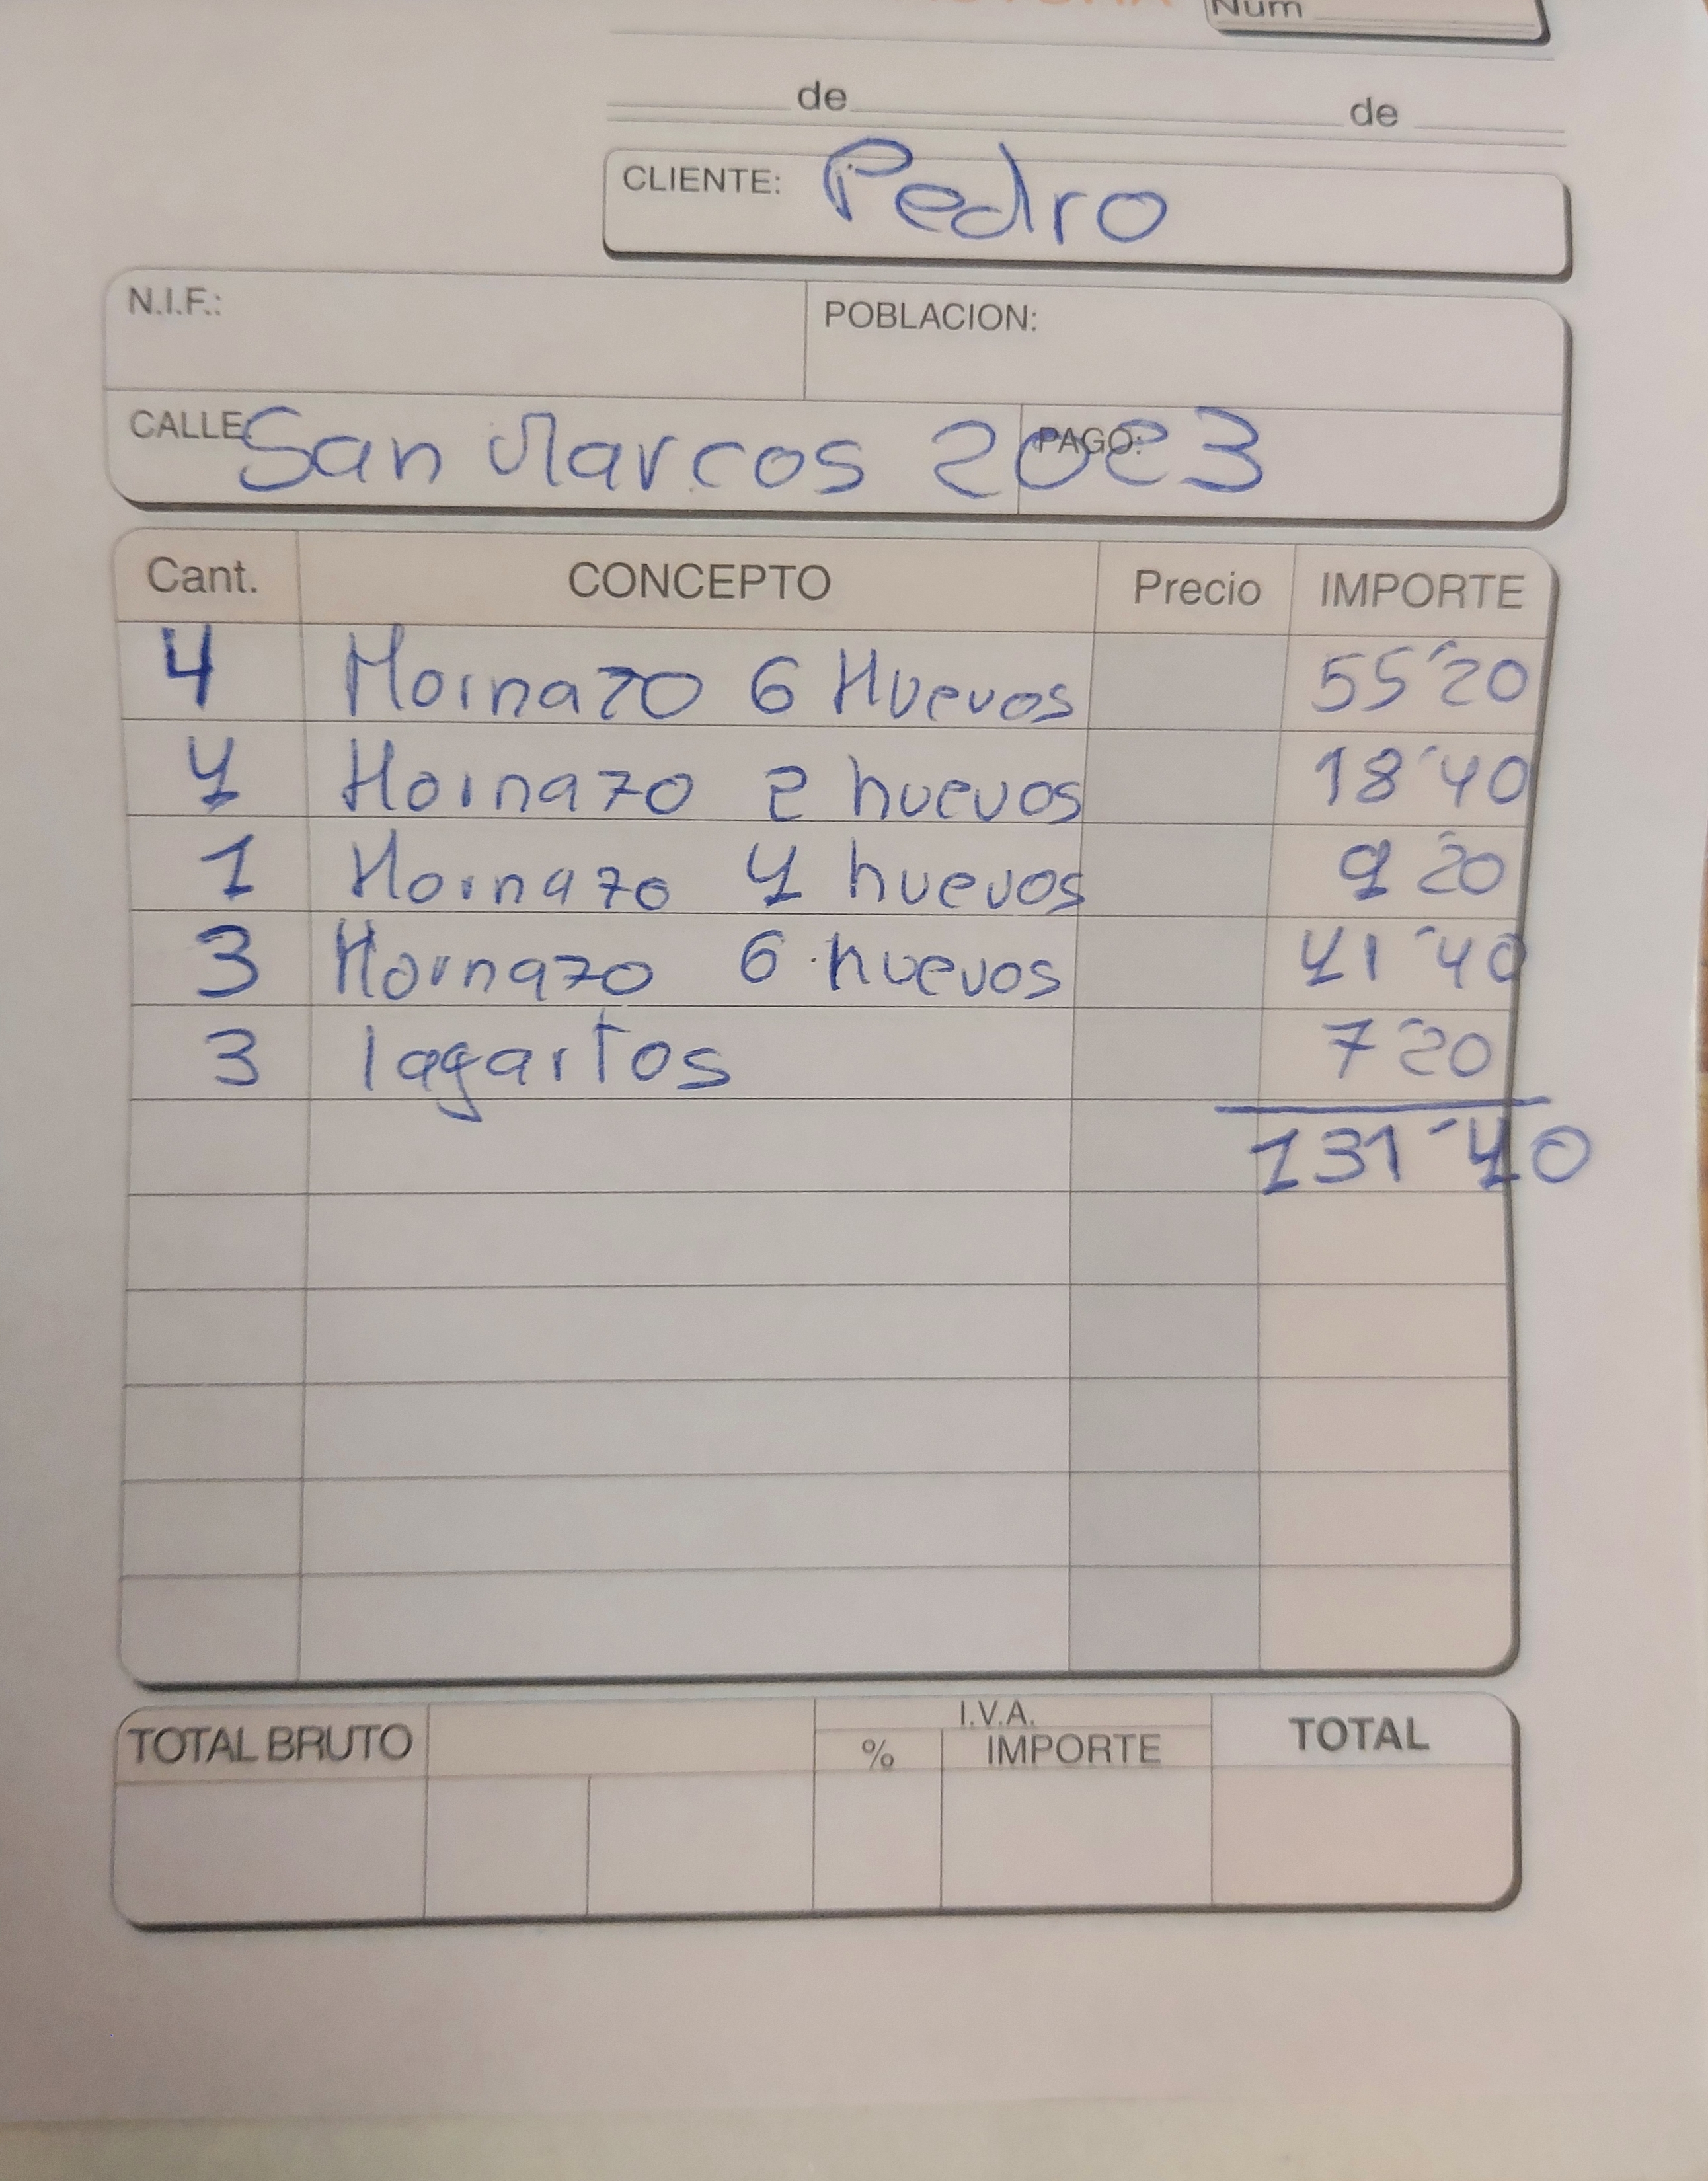 Num
de de
CLIENTE: Pedro
N.I.F.: POBLACION:
CALLE San Marcos 2023 PAGO:
Cant. CONCEPTO Precio IMPORTE
4 Hornazo 6 Huevos 55'20
4 Hornazo 2 huevos 18'40
1 Hornazo 4 huevos 9'20
3 Hornazo 6 huevos 41'40
3 lagartos 7'20
131'40
TOTAL BRUTO I.V.A. TOTAL
% IMPORTE